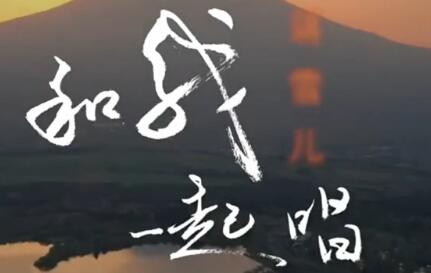 和我
一起唱